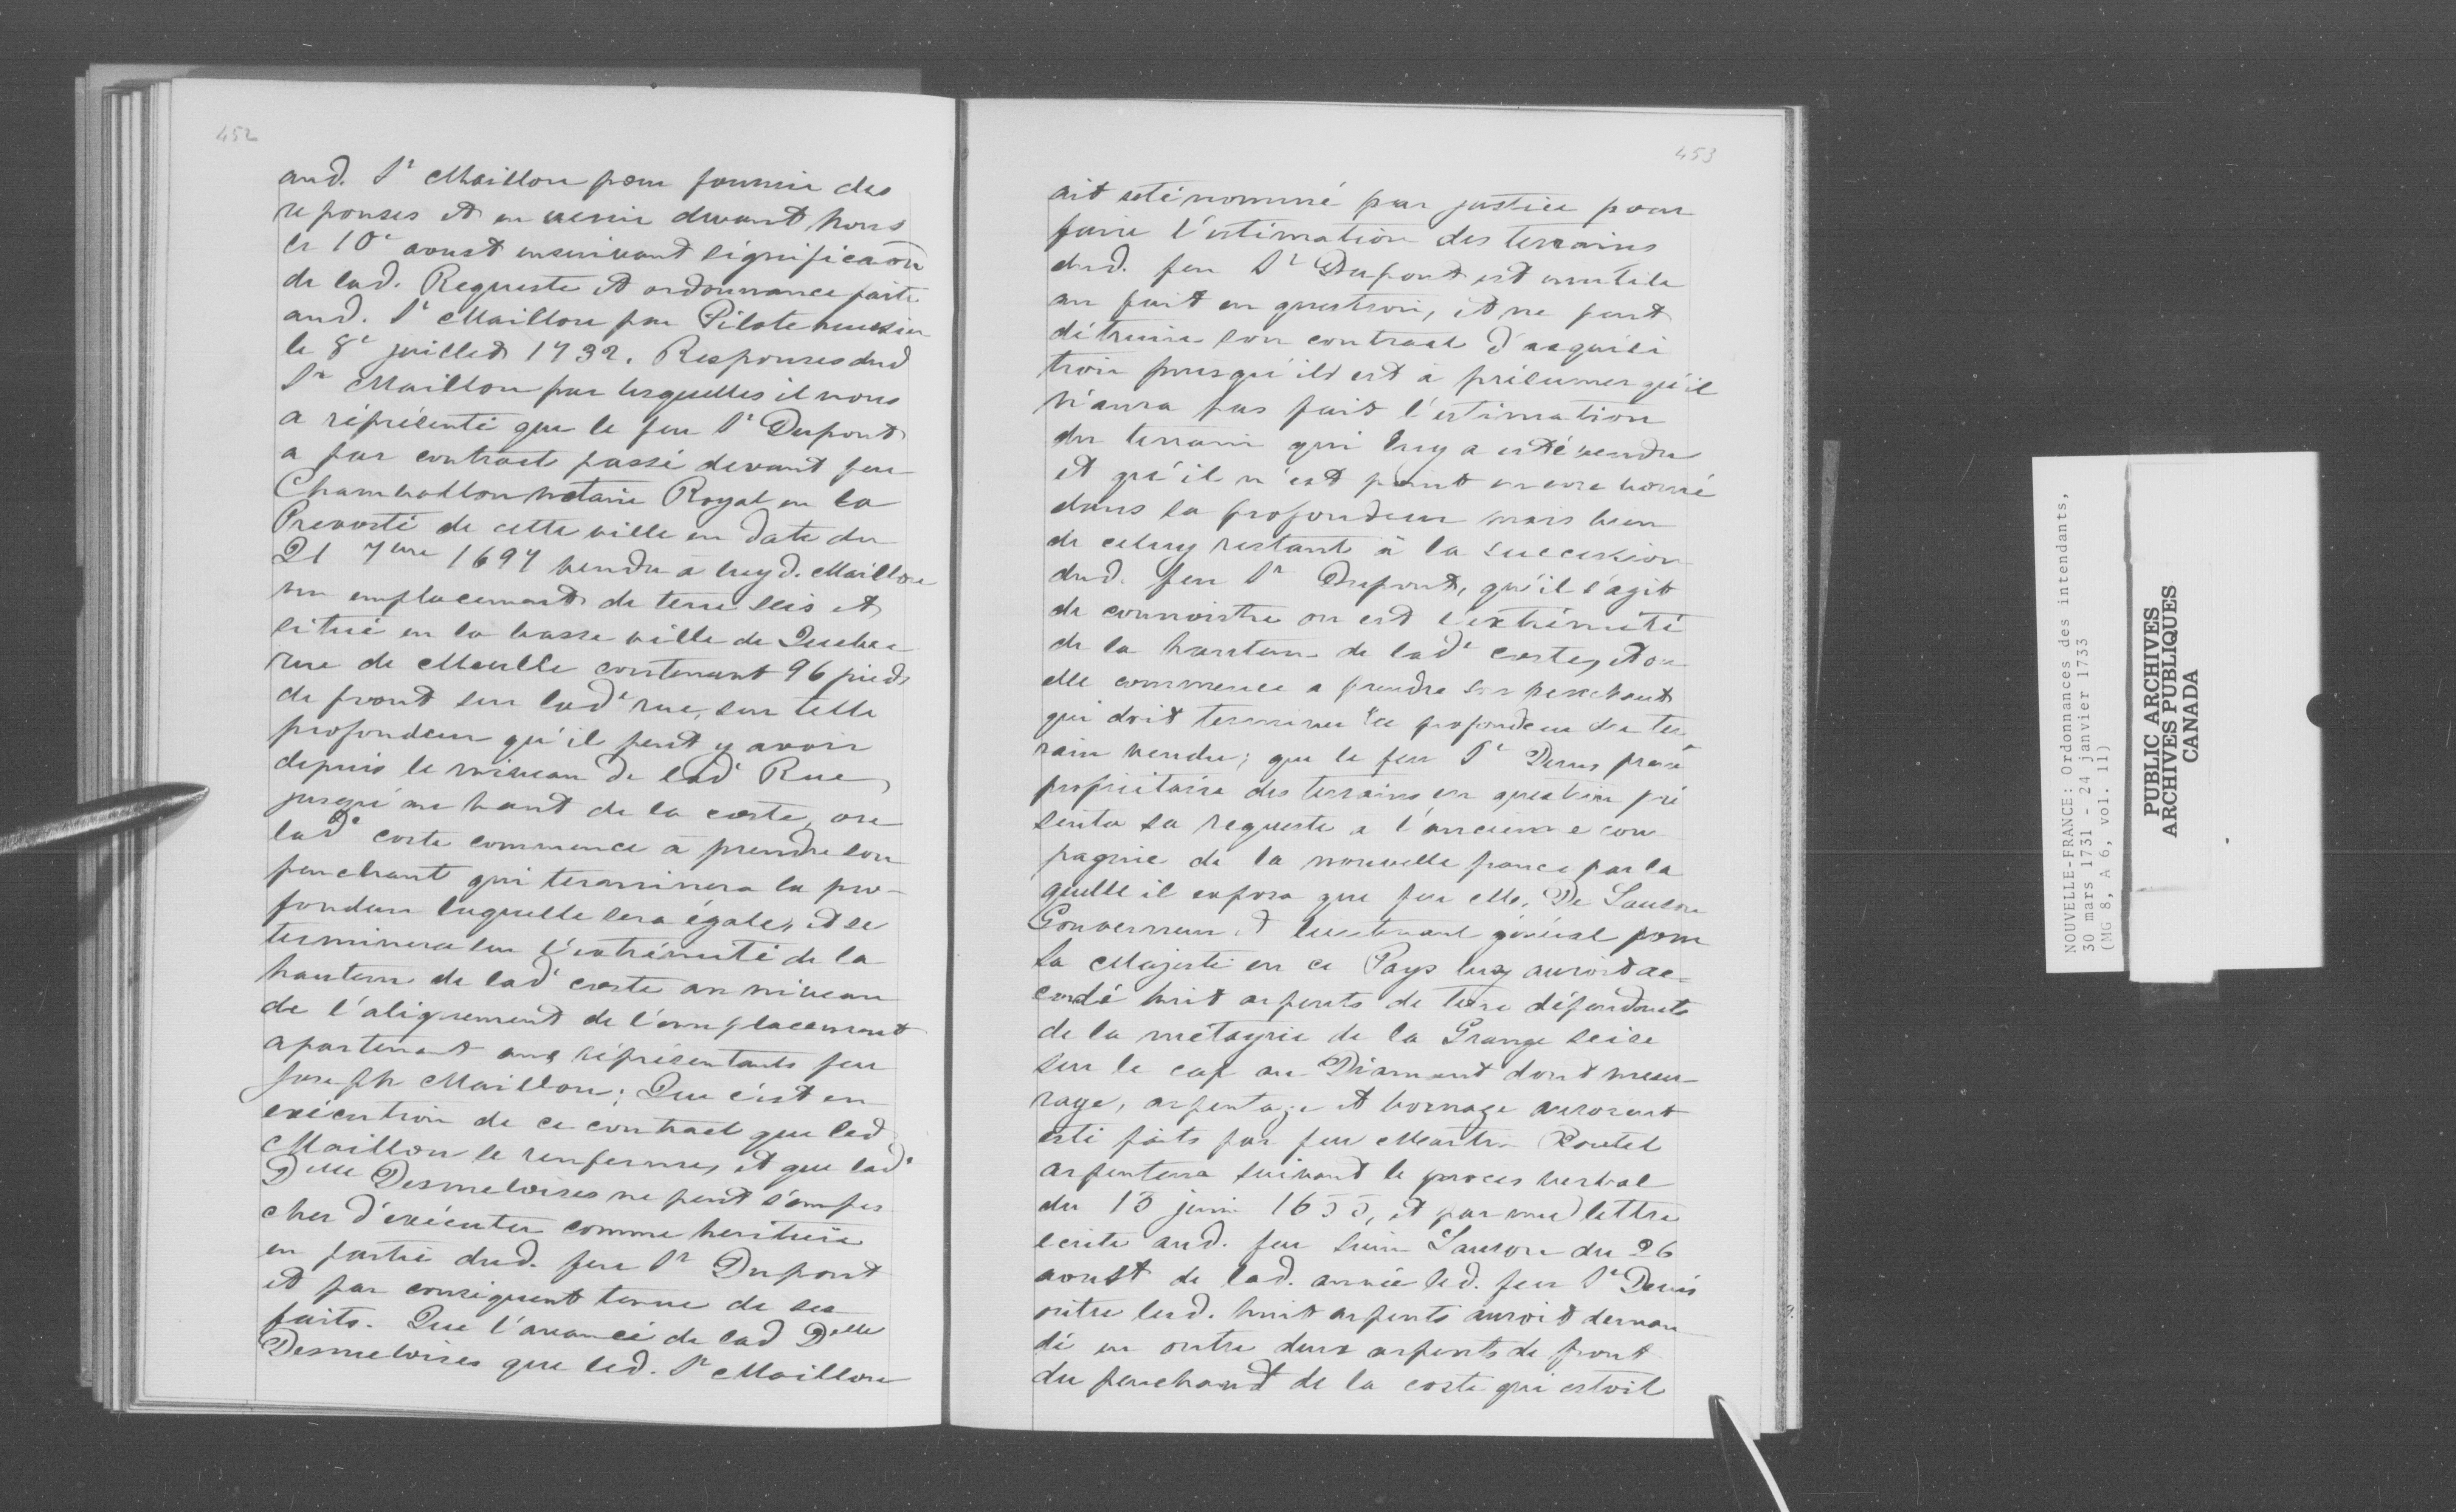 452
aud. Sr Maillou pour fournir des
reponses et en venir devant nous
le 10e aoust ensuivant significaõn
de lad. Requeste et ordonnance faite
aud. Sr Maillou par Pilote huissier
le 8e juillet 1732. Responses dud
Sr Maillou par lesquelles il nous
a réprésenté que le feu Sr Dupont
a par contract passé devant feu
Chamballon notaire Royal en la
Prevosté de cette ville en date du
21 7bre 1697 vendu a luy d. Maillou
un emplacement de terre seis et
situé en la basse ville de Quebec
rue de Meulle contenant 96 pieds
de front sur lade rue, sur telle
profondeur qu'il peut y avoir
depuis le niveau de lade Rue
jusqu'au haut de la coste, ou
lade coste commence à prendre son
penchant qui terminera la pro-
fondeur laquelle sera égale, et se
terminera sur l'extrémité de la
hauteur de lade coste au niveau
de l'alignement de l'emplacement
apartenant aux réprésentants feu
Joseph Maillou; Que c'est en
exécution de ce contract que led
Maillou se renferme, et que lade
Delle Desmeloises ne peut s'empes
cher d'exécuter comme heritiere
en partie dud. feu Sr Dupont
et par conséquent tenue de ses
faits. Que l'avancé de lad Delle
Desmeloises que led. Sr Maillou
453
ait esté nommé par justice pour
faire l'estimation des terrains
dud. feu Sr Dupont est inutile
au fait en question, et ne peut
détruire son contract d'acquisi
tion puisqu'il est à présumer qu'il
n'aura pas fait l'estimation
du terrain qui luy a esté vendu
et qu'il n'est point encore borné
dans la profondeur mais bien
de celuy restant à la succession
dud. feu Sr Dupont, qu'il s'agit
de connoistre ou est l'extrémité
de la hauteur de lade coste, et ou
elle commence a prendre son penchant
qui doit terminer la profondeur du ter
rain vendu; que le feu Sr Denis
propriétaire des terrains en question pré
senta sa requeste a l'ancienne com
pagnie de la nouvelle france par la
quelle il exposa que feu Mr. De Lauson
Gouverneur et lieutenant général pour
Sa Majesté en ce Pays luy auroit ac-
cordé huit arpents de terre dépendants
de la métayrie de la Grange seise
sur le cap au Diamant dont mesu-
rage, arpentage et bornage auroient
esté faits par feu Martin Boutet
arpenteur suivant le proces verbal
du 13 juin 1655, et par une lettre
ecrite aud. feu sieur Lauson du 26
aoust de lad. année led. feu Sr Denis
outre lesd. huit arpents auroit deman
dé en outre deux arpents de front
du penchant de la coste qui estoit
NOUVELLE-FRANCE: Ordonnances des intendants,
30 mars 1731 - 24 janvier 1733
(MG 8, A 6, vol. 11)
PUBLIC ARCHIVES
ARCHIVES PUBLIQUES
CANADA